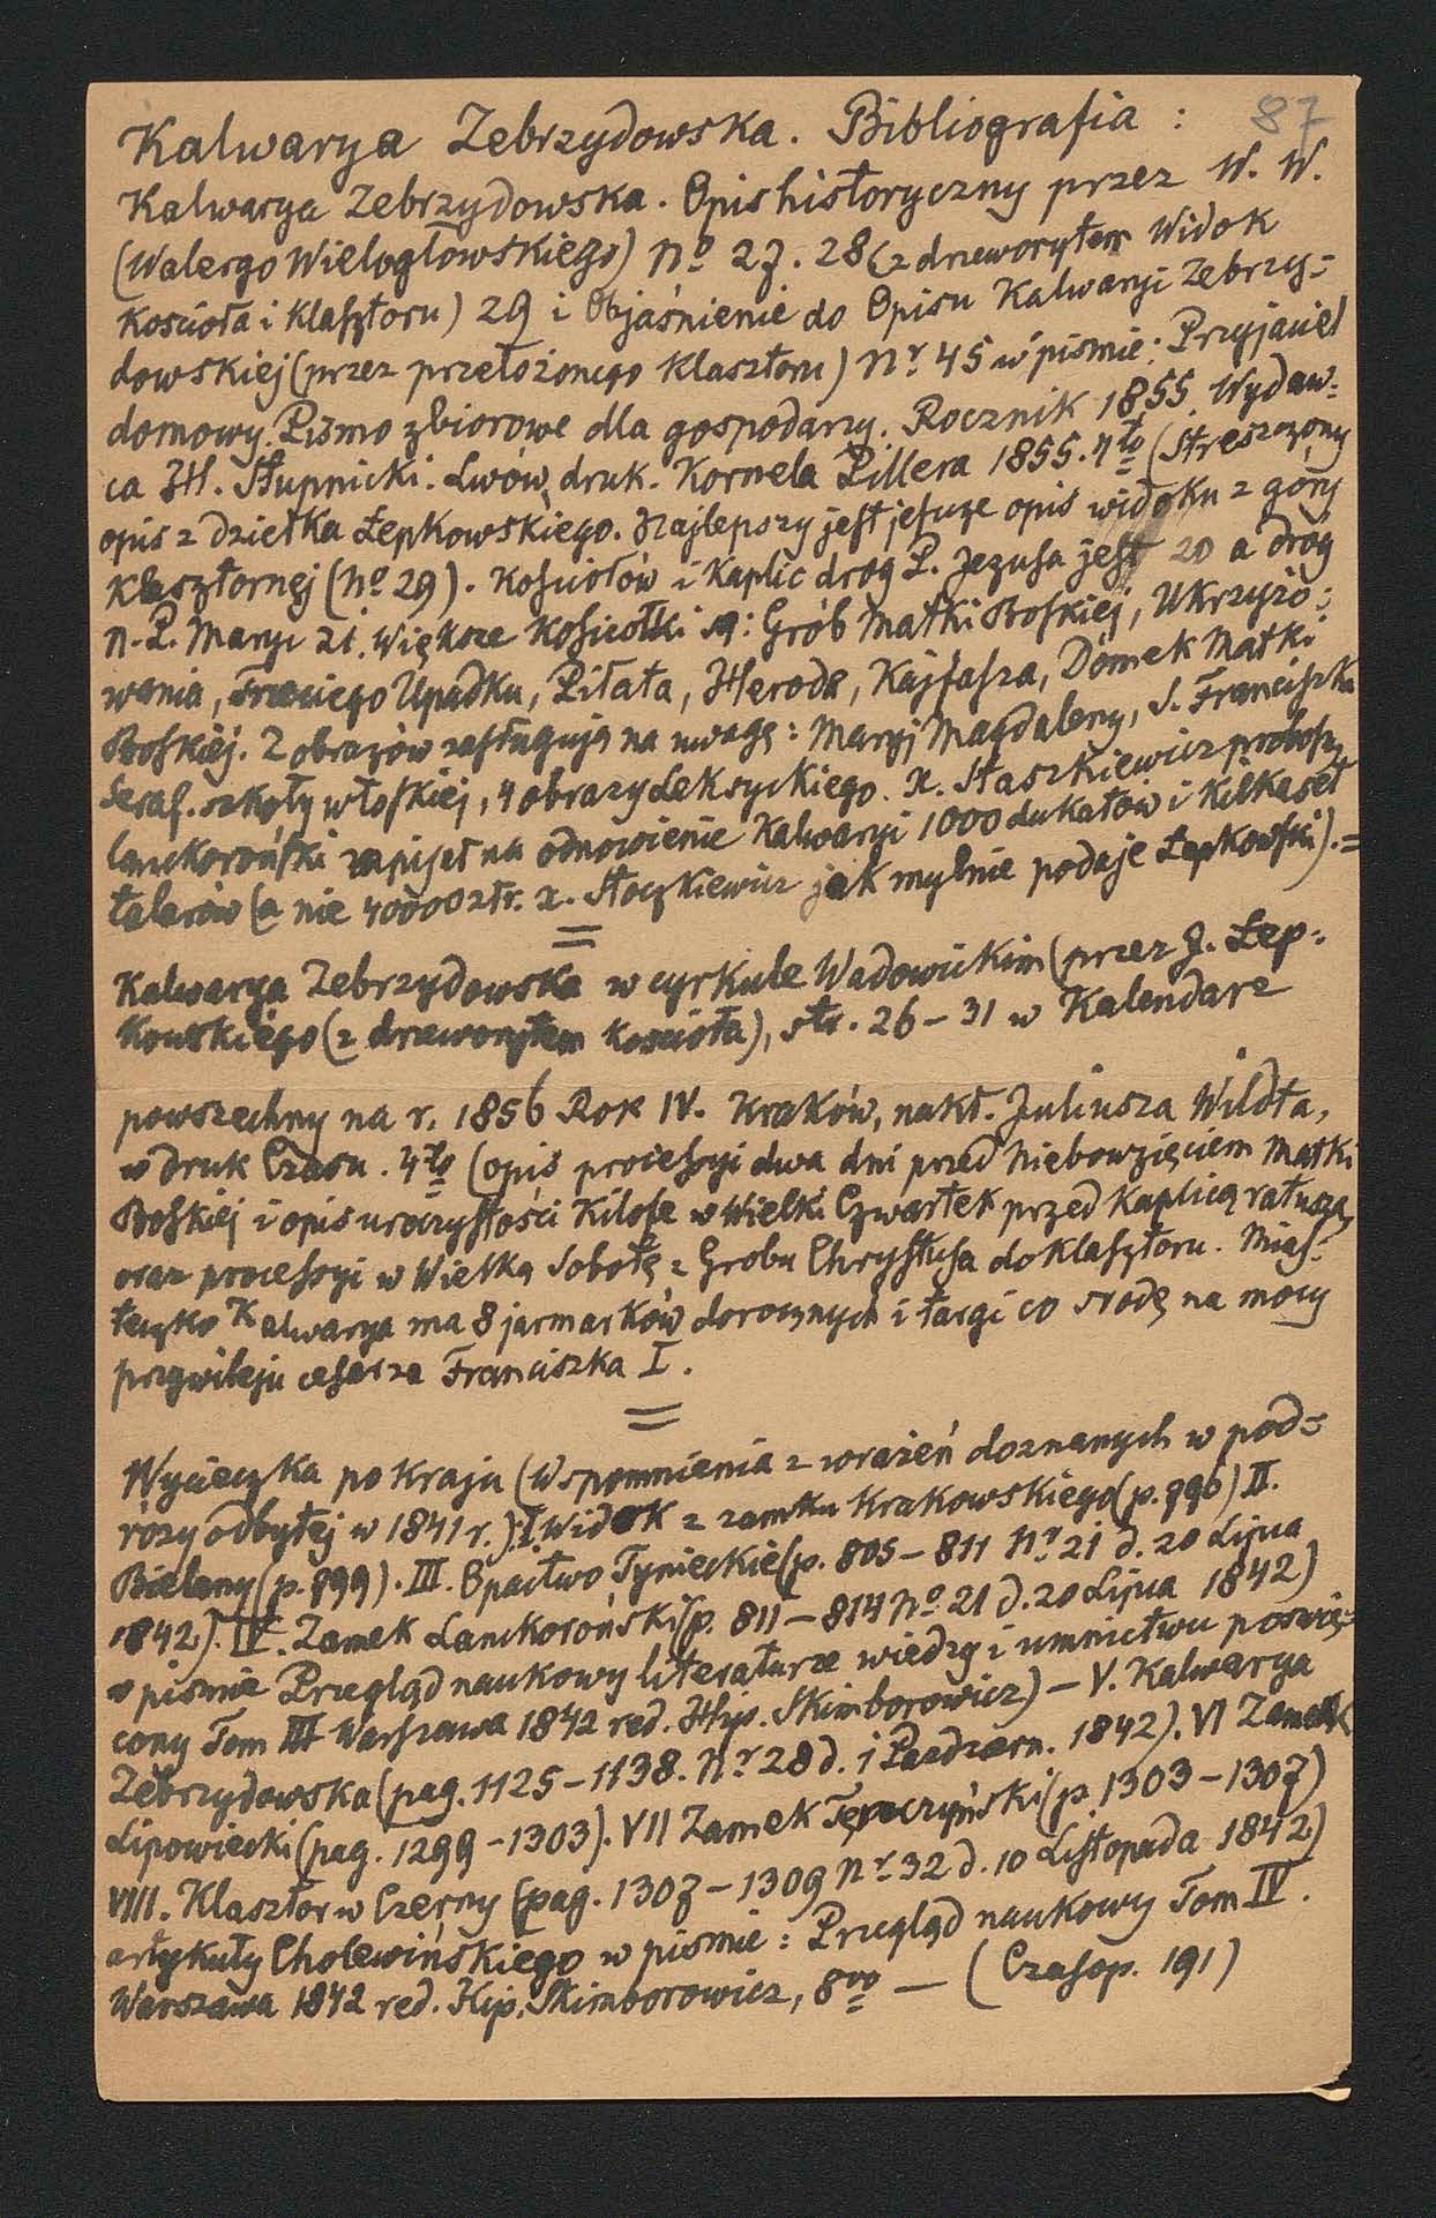 87
Kalwarya Zebrzydowska. Bibliografia :
Kalwarya Zebrzydowska. Opis historyczny przez W. W.
(Walergo Wielogłowskiego) No 27. 28 (z drzeworytem Widok
Kościoła i Klasztoru) 29 i Objaśnienie do Opisu Kalwaryi Zebrzy=
dowskiej (przez przełożonego Klasztoru) Nr 45 w piśmie: Przyjaciel
domowy. Pismo zbiorowe dla gospodarzy. Rocznik 1855. Wydaw=
ca H. Stupnicki. Lwów, druk. Kornela Pillera 1855. 4to (Streszczony
opis z dziełka Łepkowskiego. Najlepszy jest jeszcze opis widoku z góry
Klasztornej (No 29). Kościołów i Kaplic dróg P. Jezusa jest 20 a dróg
N. P. Maryi 21. Większe Kościołki są: Grób Matki Boskiej, Ukrzyżo=
wania, Trzeciego Upadku, Piłata, Heroda, Kajfasza, Domek Matki
Boskiej. Z obrazów zasługują na uwagę: Maryi Magdaleny, S. Franciszka
Seraf. szkoły włoskiej, 4 obrazy Leksyckiego. X. Staszkiewicz probosz.
lanckoroński zapisał na odnowienie Kalwaryi 1000 dukatów i Kilkaset
talarów (a nie 40000 złr. x. Stoczkiewicz jak mylnie podaje Łepkowski). =
=
Kalwarya Zebrzydowska w cyrkule Wadowickim (przez J. Łep=
Kowskiego (z drzeworytem Kościoła), str. 26 – 31 w Kalendarz
powszechny na r. 1856 Rok IV. Kraków, nakł. Juliusza Wildta,
w druk Czasu. 4to (opis processyi dwa dni przed Niebowzięciem Matki
Boskiej i opis uroczystości Kilofe w Wielki Czwartek przed Kaplicą ratusza,
oraz processyi w Wielką Sobotę z Grobu Chrystusa do Klasztoru. Mias=
teczko Kalwarya ma 8 jarmarków dorocznych i targi co środę na mocy
przywileju cesarza Franciszka I.
=
Wycieczka po Kraju (Wspomnienia z wrażeń doznanych w pod=
róży odbytej w 1841 r.): I. Widok z zamku Krakowskiego (p. 796) II.
Bielany (p. 799). III. Opactwo Tynieckie (p. 805 – 811 Nr 21 d. 20 Lipca
1842). IV. Zamek Lanckoroński (p. 811 – 814 No 21 d. 20 Lipca 1842)
w piśmie Przegląd naukowy literaturze wiedzy i umnictwu poświę=
cony Tom III Warszawa 1842 red. Hip. Skimborowicz) – V. Kalwarya
Zebrzydowska (pag. 1125 – 1138. Nr 28 d. 1 Październ. 1842). VI Zamek
Lipowiecki (pag. 1299 – 1303). VII Zamek Tęczyński (p. 1303 – 1307)
VIII. Klasztor w Czerny (pag. 1307 – 1309 Nr 32 d. 10 Listopada 1842)
artykuły Cholewińskiego w piśmie : Przegląd naukowy Tom IV.
Warszawa 1842 red. Hip. Skimborowicz, 8vo — (Czasop. 191)